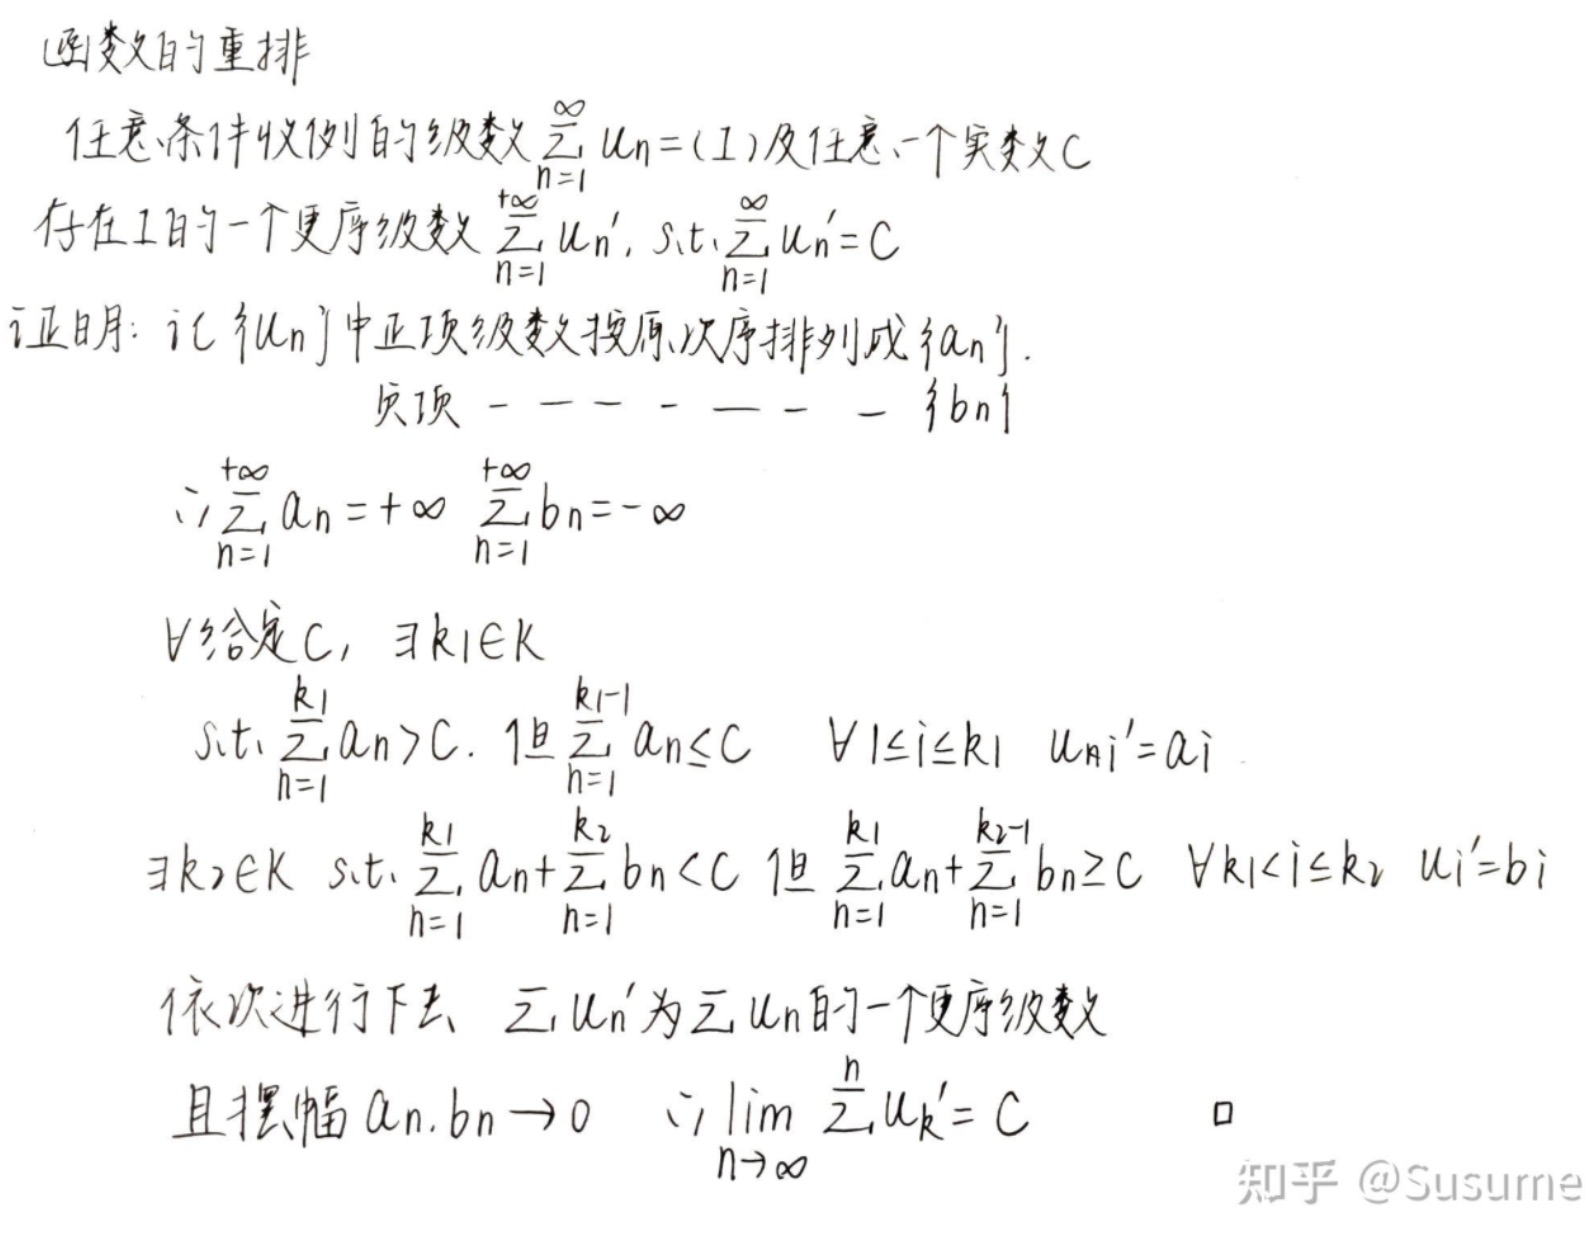 函数的重排
任意条件收敛的级数 $\sum_{n=1}^{\infty} u_n = (I)$ 及任意一个实数C
存在I的一个更序级数 $\sum_{n=1}^{+\infty} u_n'$, s.t. $\sum_{n=1}^{\infty} u_n' = C$
证明: 记 {u_n} 中正项级数按原次序排列成 {a_n}.
负项 - - - - - - - {b_n}
∴ $\sum_{n=1}^{+\infty} a_n = +\infty$ $\sum_{n=1}^{+\infty} b_n = -\infty$
∀给定C, ∃k1∈K
s.t. $\sum_{n=1}^{k_1} a_n > C$. 但 $\sum_{n=1}^{k_1-1} a_n \le C$ ∀1≤i≤k1 $u_{ni}' = a_i$
∃k2∈K s.t. $\sum_{n=1}^{k_1} a_n + \sum_{n=1}^{k_2} b_n < C$ 但 $\sum_{n=1}^{k_1} a_n + \sum_{n=1}^{k_2-1} b_n \ge C$ ∀k1<i≤k2 $u_i' = b_i$
依次进行下去 $\sum u_n'$ 为 $\sum u_n$ 的一个更序级数
且摆幅 a_n. b_n → 0 ∴ $\lim_{n\to\infty} \sum^{n} u_k' = C$ □
知乎 @Susurne